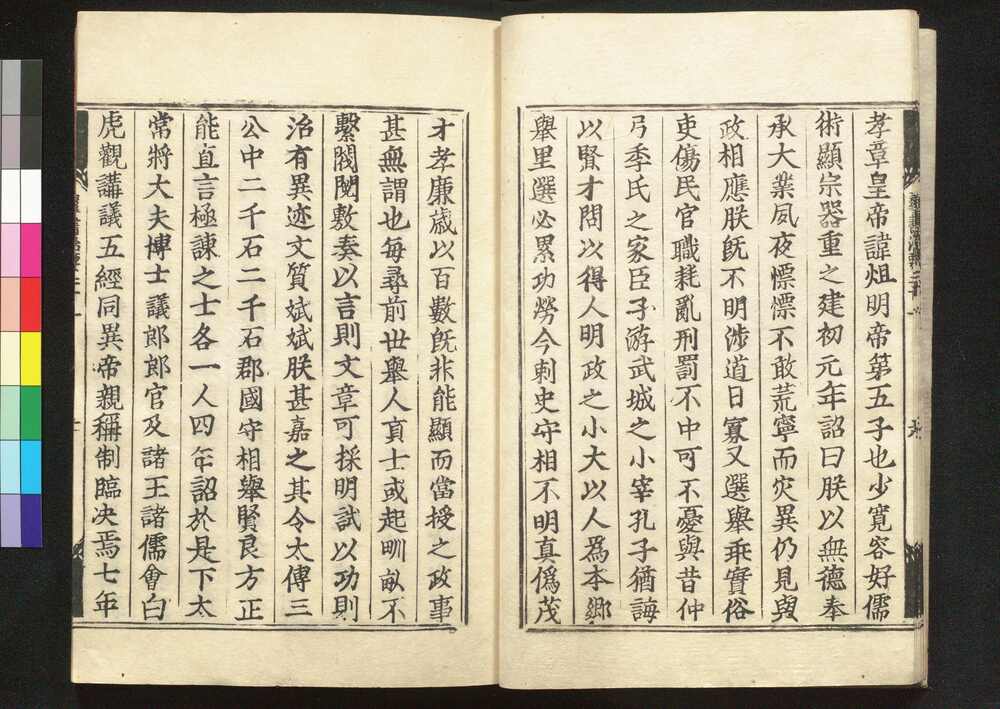 孝章皇帝諱炟明帝第五子也少寬容好儒
術顯宗器重之建初元年詔曰朕以無德奉
承大業夙夜慓慓不敢荒寧而灾異仍見與
政相應朕旣不明涉道日寡又選舉乖實俗
吏傷民官職耗亂刑罰不中可不憂與昔仲
弓季氏之家臣子游武城之小宰孔子猶誨
以賢才問以得人明政之小大以人爲本鄉
舉里選必累功勞今刺史守相不明真僞茂
才孝廉歲以百數旣非能顯而當授之政事
甚無謂也每尋前世舉人貢士或起甽畝不
繫閥閱敷奏以言則文章可採明試以功則
治有異迹文質斌斌朕甚嘉之其令太傅三
公中二千石二千石郡國守相舉賢良方正
能直言極諫之士各一人四年詔於是下太
常將大夫博士議郎郎官及諸王諸儒會白
虎觀講議五經同異帝親稱制臨决焉七年